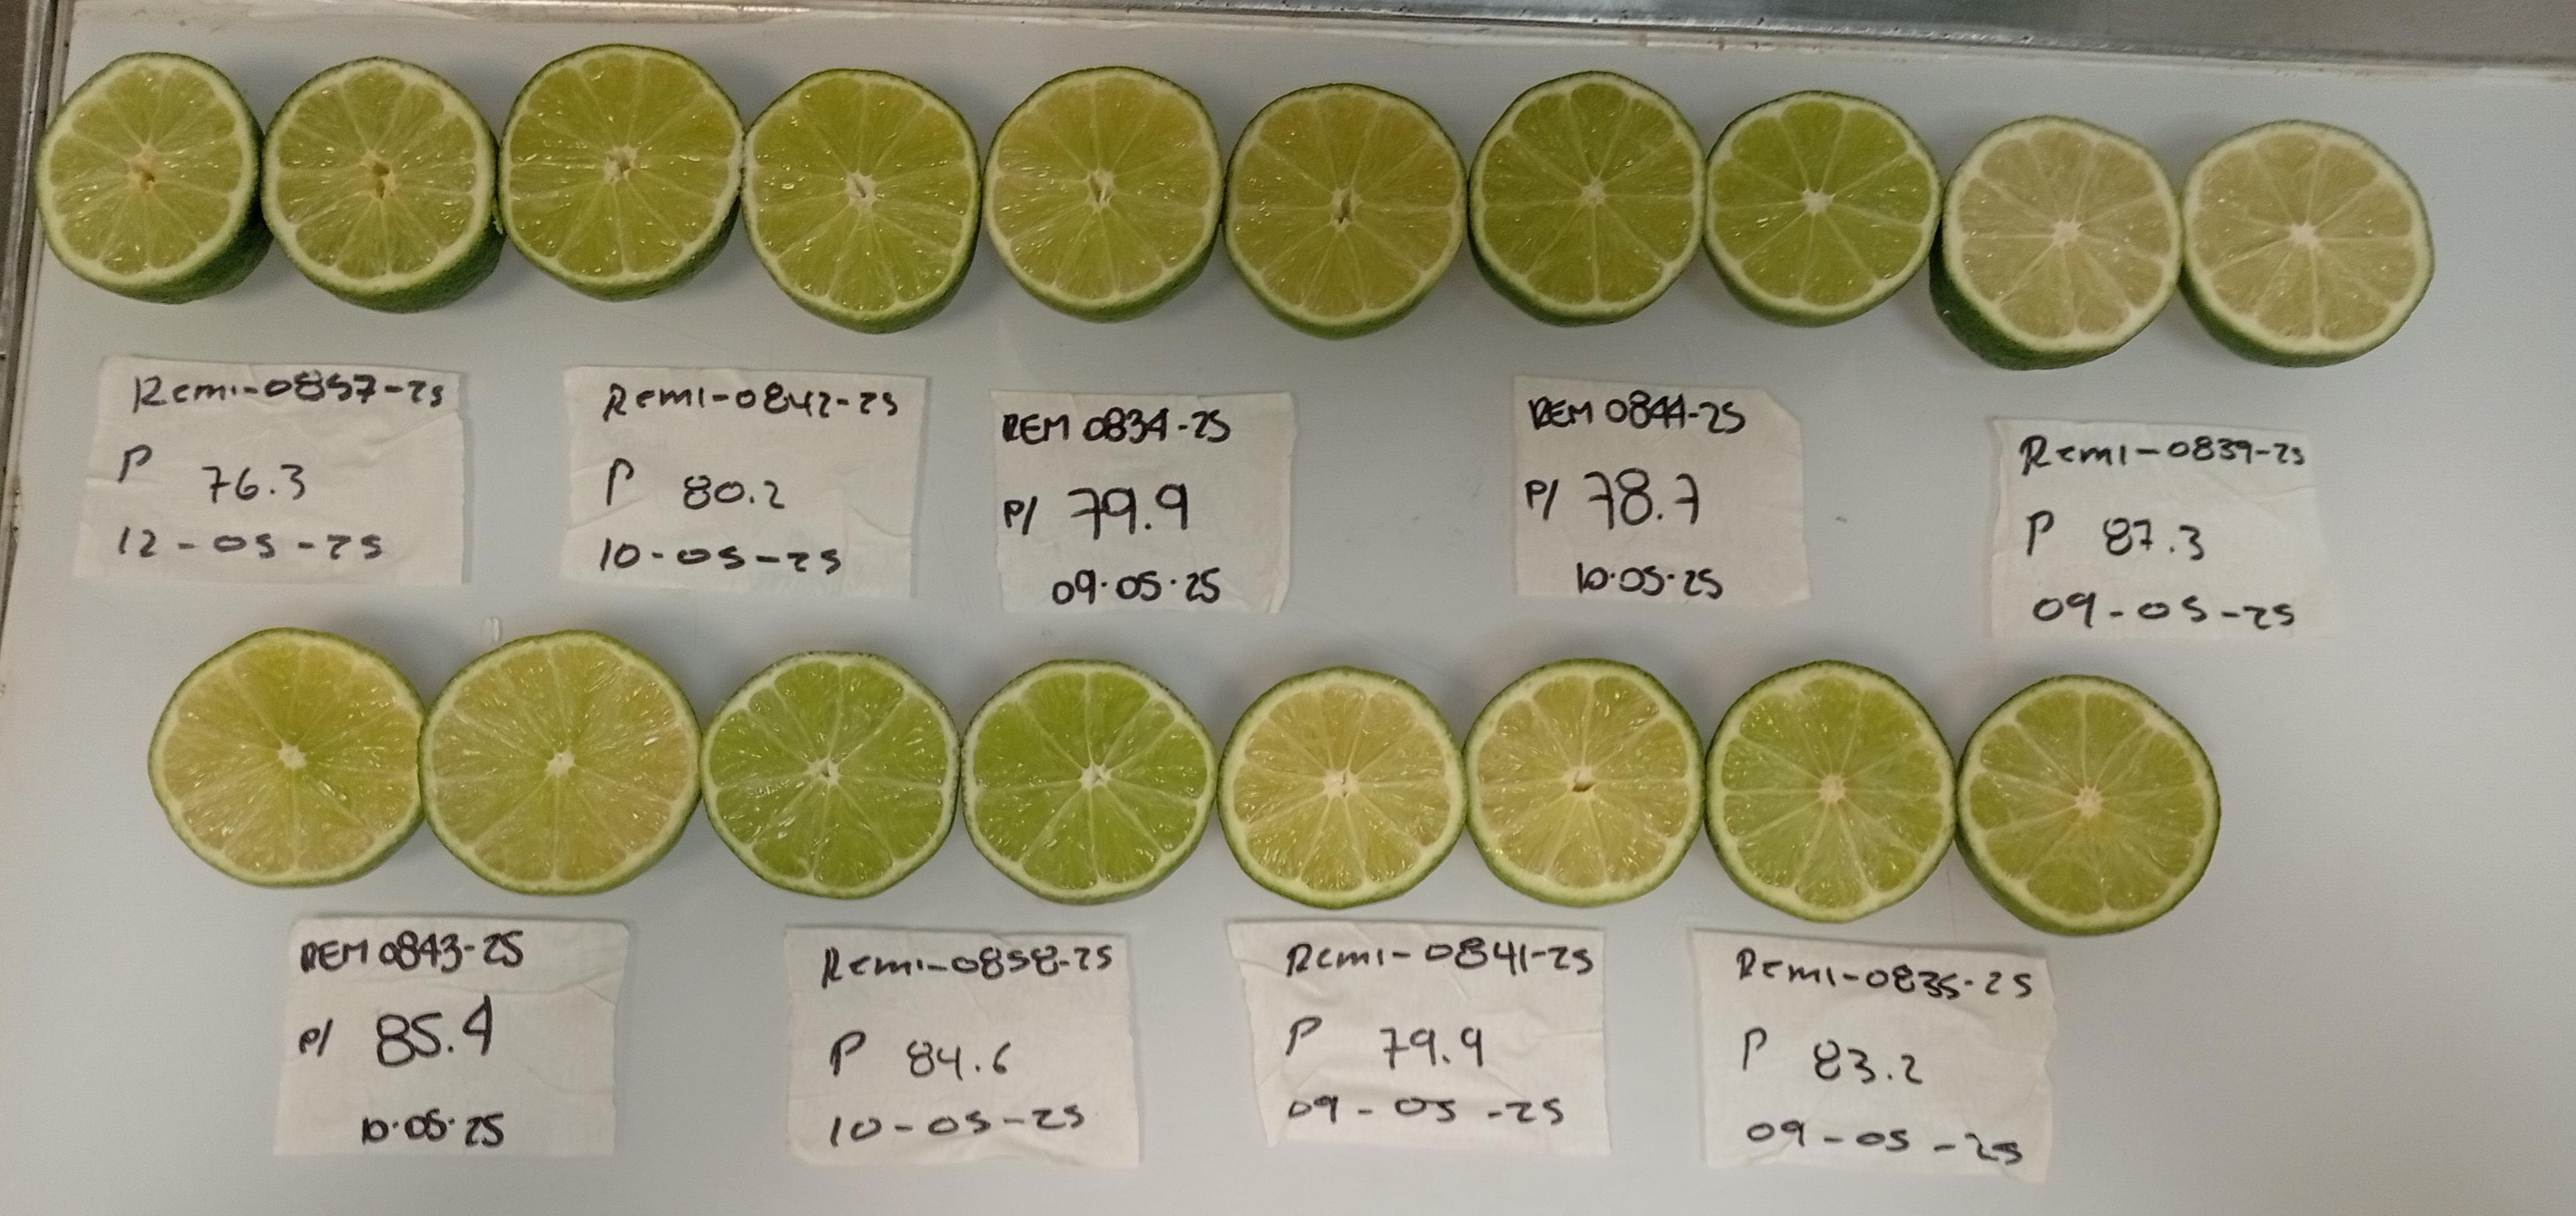 Remi-0857-25
P 76.3
12-05-25
Remi-0842-25
P 80.2
10-05-25
REM 0834-25
P/ 79.9
09.05.25
REM 0844-25
P/ 78.7
10.05.25
Remi-0839-25
P 87.3
09-05-25
REM 0843-25
P/ 85.4
10.05.25
Remi-0858-25
P 84.6
10-05-25
Remi-0841-25
P 79.9
09-05-25
Remi-0835-25
P 83.2
09-05-25